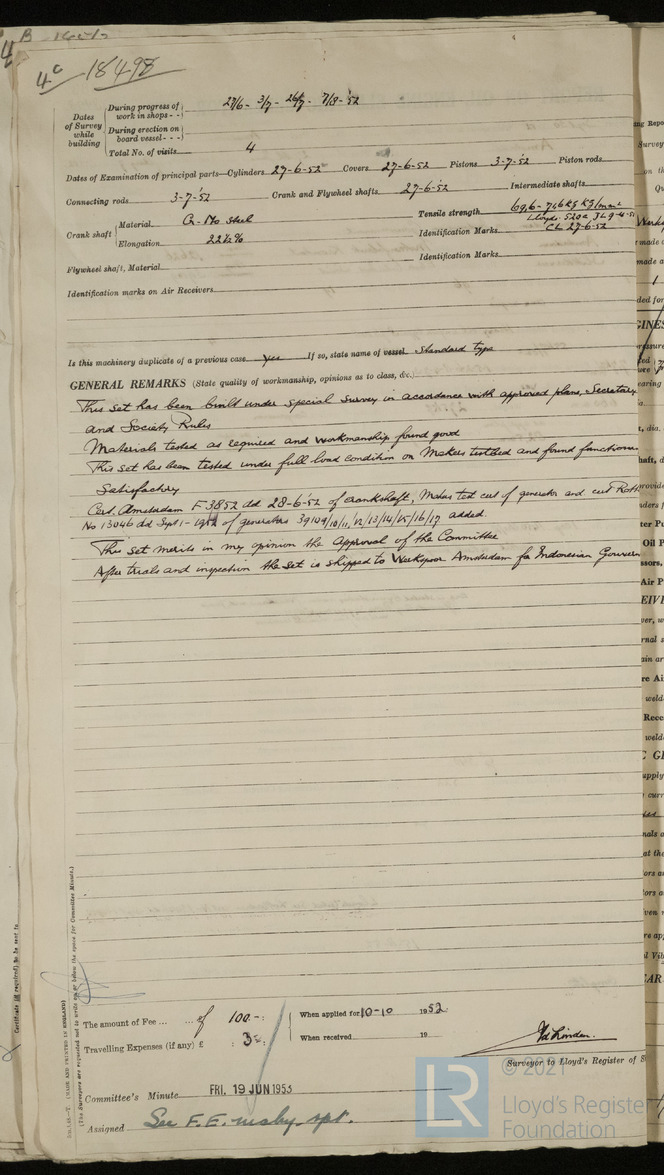 4c 18498
Dates of Survey while building
During progress of work in shops - - 27/6 - 3/7 - 26/7 - 7/8 - '52
During erection on board vessel - - -
Total No. of visits 4
Dates of Examination of principal parts—Cylinders 27-6-52 Covers 27-6-52 Pistons 3-7-'52 Piston rods
Connecting rods 3-7-'52 Crank and Flywheel shafts 27-6-'52 Intermediate shafts
Crank shaft Material Cr-Mo Steel Tensile strength 69,6-74,6 kg/mm²
Elongation 22½% Identification Marks Lloyds 520a JL 9-4-51
CL 27-6-52
Flywheel shaft, Material Identification Marks
Identification marks on Air Receivers
Is this machinery duplicate of a previous case yes If so, state name of vessel Standard type
GENERAL REMARKS (State quality of workmanship, opinions as to class, &c.)
This set has been built under special survey in accordance with approved plans, Secretary
and Society Rules
Materials tested as required and workmanship found good
This set has been tested under full load condition on Makers testbed and found
Satisfactory
Cert. Amsterdam F 3852 dd 28-6-'52 of crankshaft, Makers test cert of generator and cert Rott
No 13046 dd Sept 1- of generators 39109/10/11/12/13/14/15/16/17 added.
This set merits in my opinion the Approval of the Committee
After trials and inspection the set is shipped to Werkspoor Amsterdam for Indonesian
Certificate (if required) to be sent to
(MADE AND PRINTED IN ENGLAND)
(The Surveyors are requested not to write on or below the space for Committee Minute.)
The amount of Fee ... ... f 100.-: When applied for 10-10 1952
Travelling Expenses (if any) £ : 3 : When received 19
Surveyor to Lloyd's Register of S
Committee's Minute FRI. 19 JUN 1953
Assigned See F.E. mchy. rpt.
© 2021
LR
Lloyd's Register
Foundation